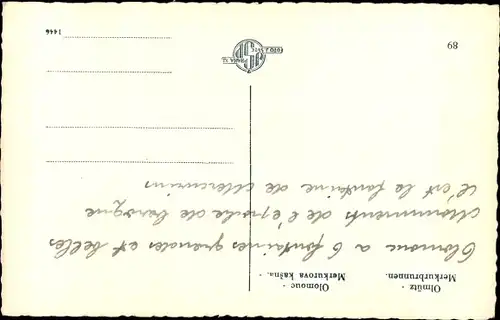 Olmütz -
Merkurbrunnen.
Olomouc -
Merkurova kašna.
Olomouc a 6 fontaines grandes et belles
Monuments de l'époke de baroque
C'est la fontaine de Mercurius
89
FOTO J. SVEC
PRAHA XI.
1446